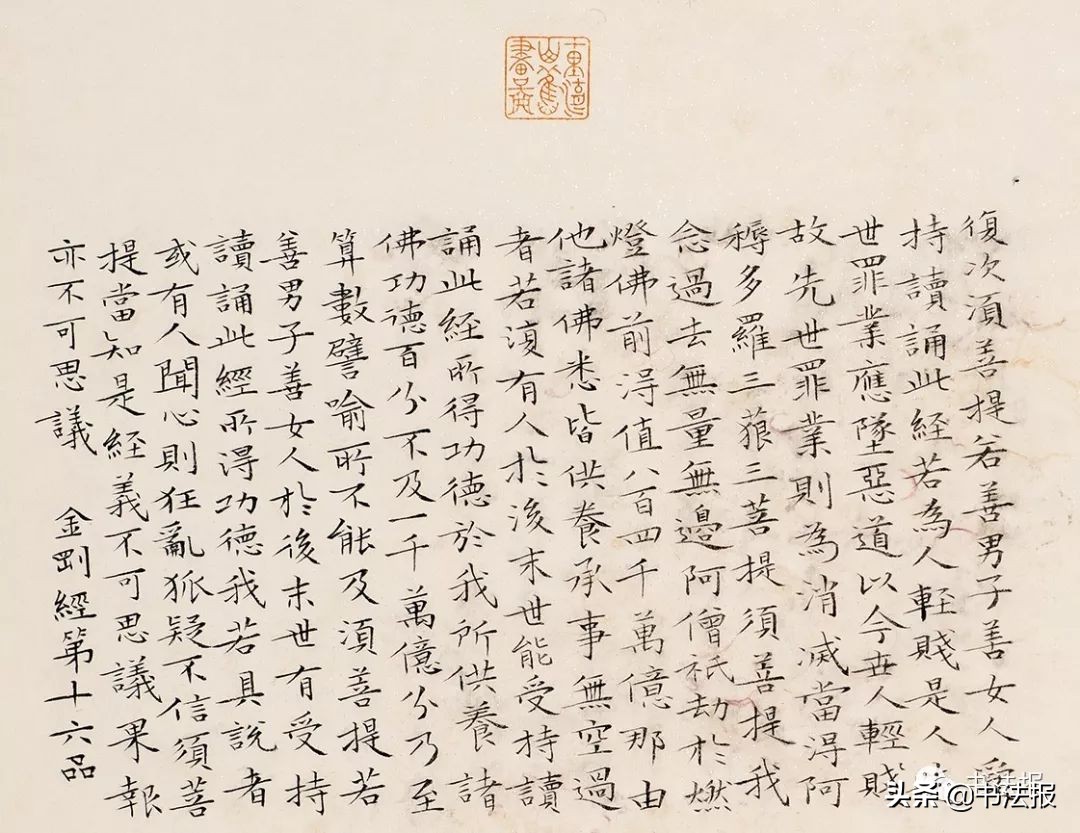 復次須菩提若善男子善女人受
持讀誦此経若為人軽賤是人
世罪業應墜惡道以今世人輕賤
故先世罪業則為消滅當淂阿
耨多羅三藐三菩提須菩提我
念過去無量無邊阿僧祇劫於燃
燈佛前淂值八百四千萬億那由
他諸佛悉皆供養承事無空過
者若復有人於後末世能受持讀
誦此経所得功德於我所供養諸
佛功德百分不及一千萬億分乃至
算數譬喻所不能及須菩提若
善男子善女人於後末世有受持
讀誦此經所淂功德我若具說者
或有人聞心則狂亂狐疑不信須菩
提當知是経義不可思議果報
亦不可思議 金剛經第十六品
书法报
头条 @书法报